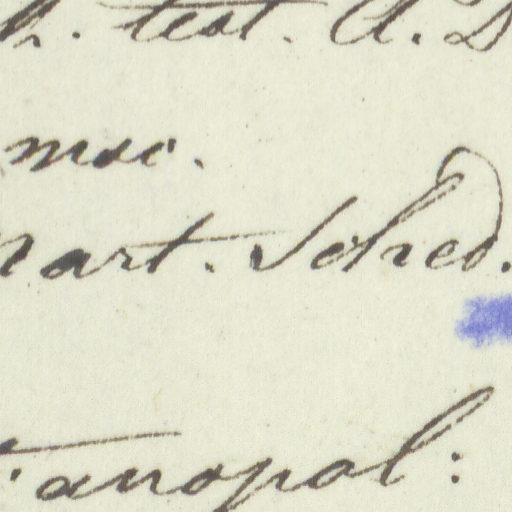 h. test. A. D
msc.
art. Sched.
ianopol: